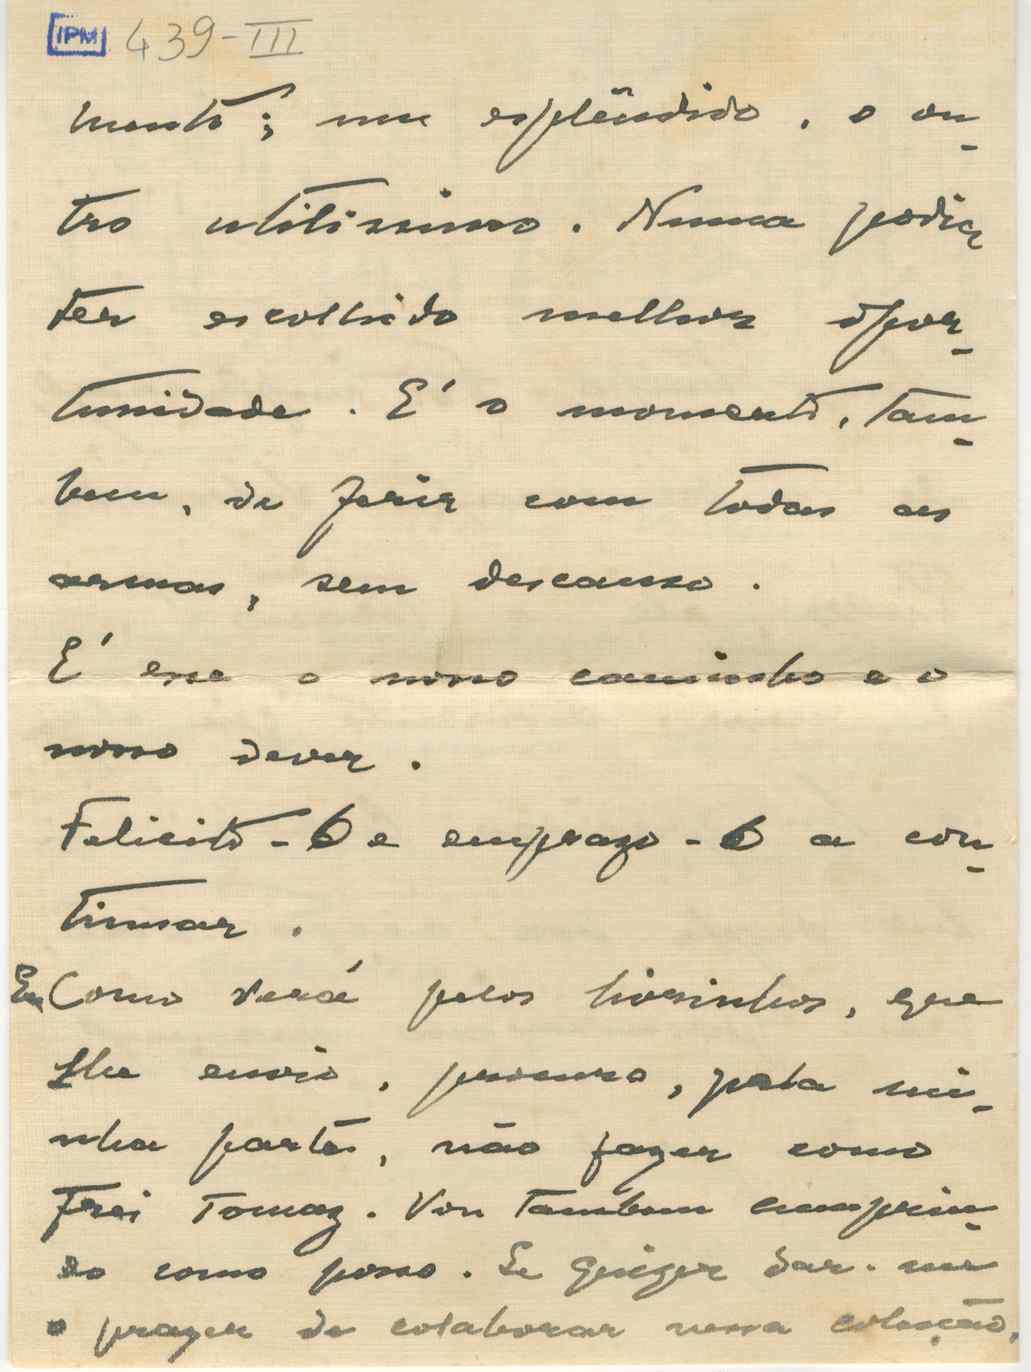 IPM 439-III
mento; um esplêndido, o ou-
tro utilissimo. Nunca podia
ter escolhido melhor opor-
tunidade. E' o momento, tam-
bem, de ferir com todas as
armas, sem descanso.
E' esse o nosso caminho e o
nosso dever.
Felicito-o e emprazo-o a con-
tinuar.
Eu Como verá pelos livrinhos, que
lhe envio, procuro, pela mi-
nha parte, não fazer como
Frei Tomaz. Vou tambem cumprin-
do como posso. Se quizer dar-me
o prazer de colaborar nessa colecção,